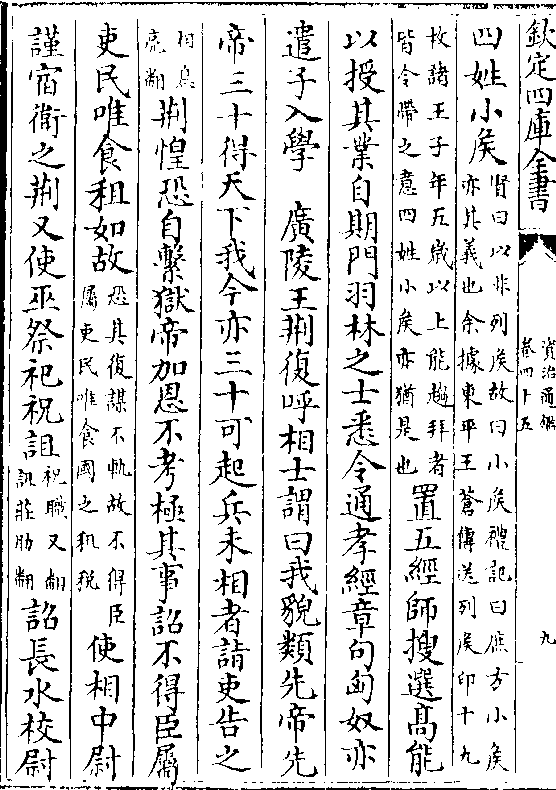 欽定四庫全書
資治通鑑
卷四十五
九
四姓小侯賢曰以非列侯故曰小侯禮記曰庶方小侯
亦其義也余據東平王蒼傳送列侯印十九
枚諸王子年五歲以上能趨拜者
皆令帶之意四姓小侯亦猶是也置五經師搜選高能
以授其業自期門羽林之士悉令通孝經章句匈奴亦
遣子入學　廣陵王荆復呼相士謂曰我貌類先帝先
帝三十得天下我今亦三十可起兵未相者詣吏告之
相息
亮翻荆惶恐自繫獄帝加恩不考極其事詔不得臣屬
吏民唯食租如故恐其復謀不軌故不得臣
屬吏民唯食國之租稅使相中尉
謹宿衛之荆又使巫祭祀祝詛祝職又翻
詛莊助翻詔長水校尉